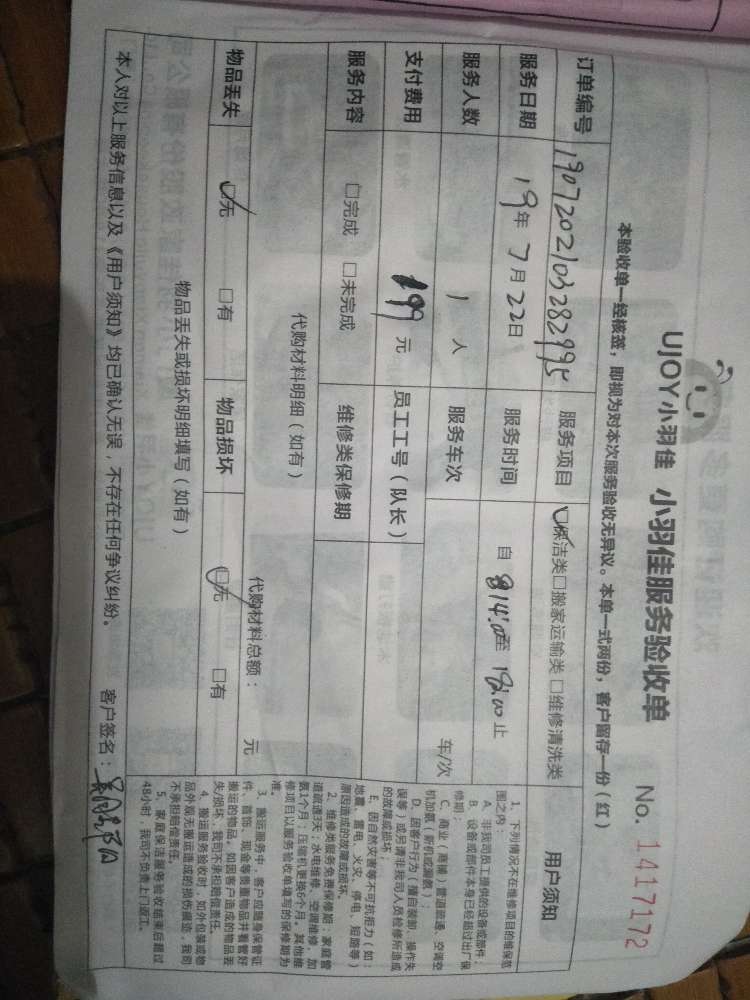 UJOY小羽佳 小羽佳服务验收单
No. 1417172
本验收单一经核签，即视为对本次服务验收无异议。本单一式两份，客户留存一份（红）
订单编号 1907202103282995 服务项目 保洁类 □搬家运输类 □维修清洗类
服务日期 19年7月22日 服务时间 自 14:00至 18:00止
服务人数 1 人 服务车次 车/次
支付费用 199 元 员工工号（队长）
服务内容 □完成 □未完成 维修类保修期
代购材料明细（如有）
代购材料总额： 元
物品丢失 无 □有 物品损坏 无 □有
物品丢失或损坏明细填写（如有）
本人对以上服务信息以及《用户须知》均已确认无误，不存在任何争议纠纷。 客户签名：
用户须知
1、下列情况不在维修项目的维保范
围之内：
A、非我司员工提供的设备或部件；
B、设备或部件本身已经超过出厂保
修期；
C、商业（商铺）管道疏通、空调空
机加氨（新机或漏氨）；
D、因客户行为（擅自装卸、操作失
误等）或另请非我司人员检修所造成
的故障或损坏；
E、因自然灾害等不可抗拒力（如：
地震、雷电、火灾、停电、短路等）
原因造成的故障或损坏。
2、维修类服务免费保修期：家庭管
道疏通3天；水电维修、空调维修、加
氨1个月；压缩机更换6个月。其他维
修项目以服务验收单填写的保修期为
准。
3、搬运服务中，客户应随身保管证
件、首饰、现金等贵重物品并看管好
搬运的物品，如因客户造成的物品丢
失/损坏，我司不承担赔偿责任。
4、搬运服务验收时，如外包装或物
品外观无搬运造成的损伤痕迹，我司
不承担赔偿责任。
5、家庭保洁服务验收结束后超过
48小时，我司不负责上门返工。